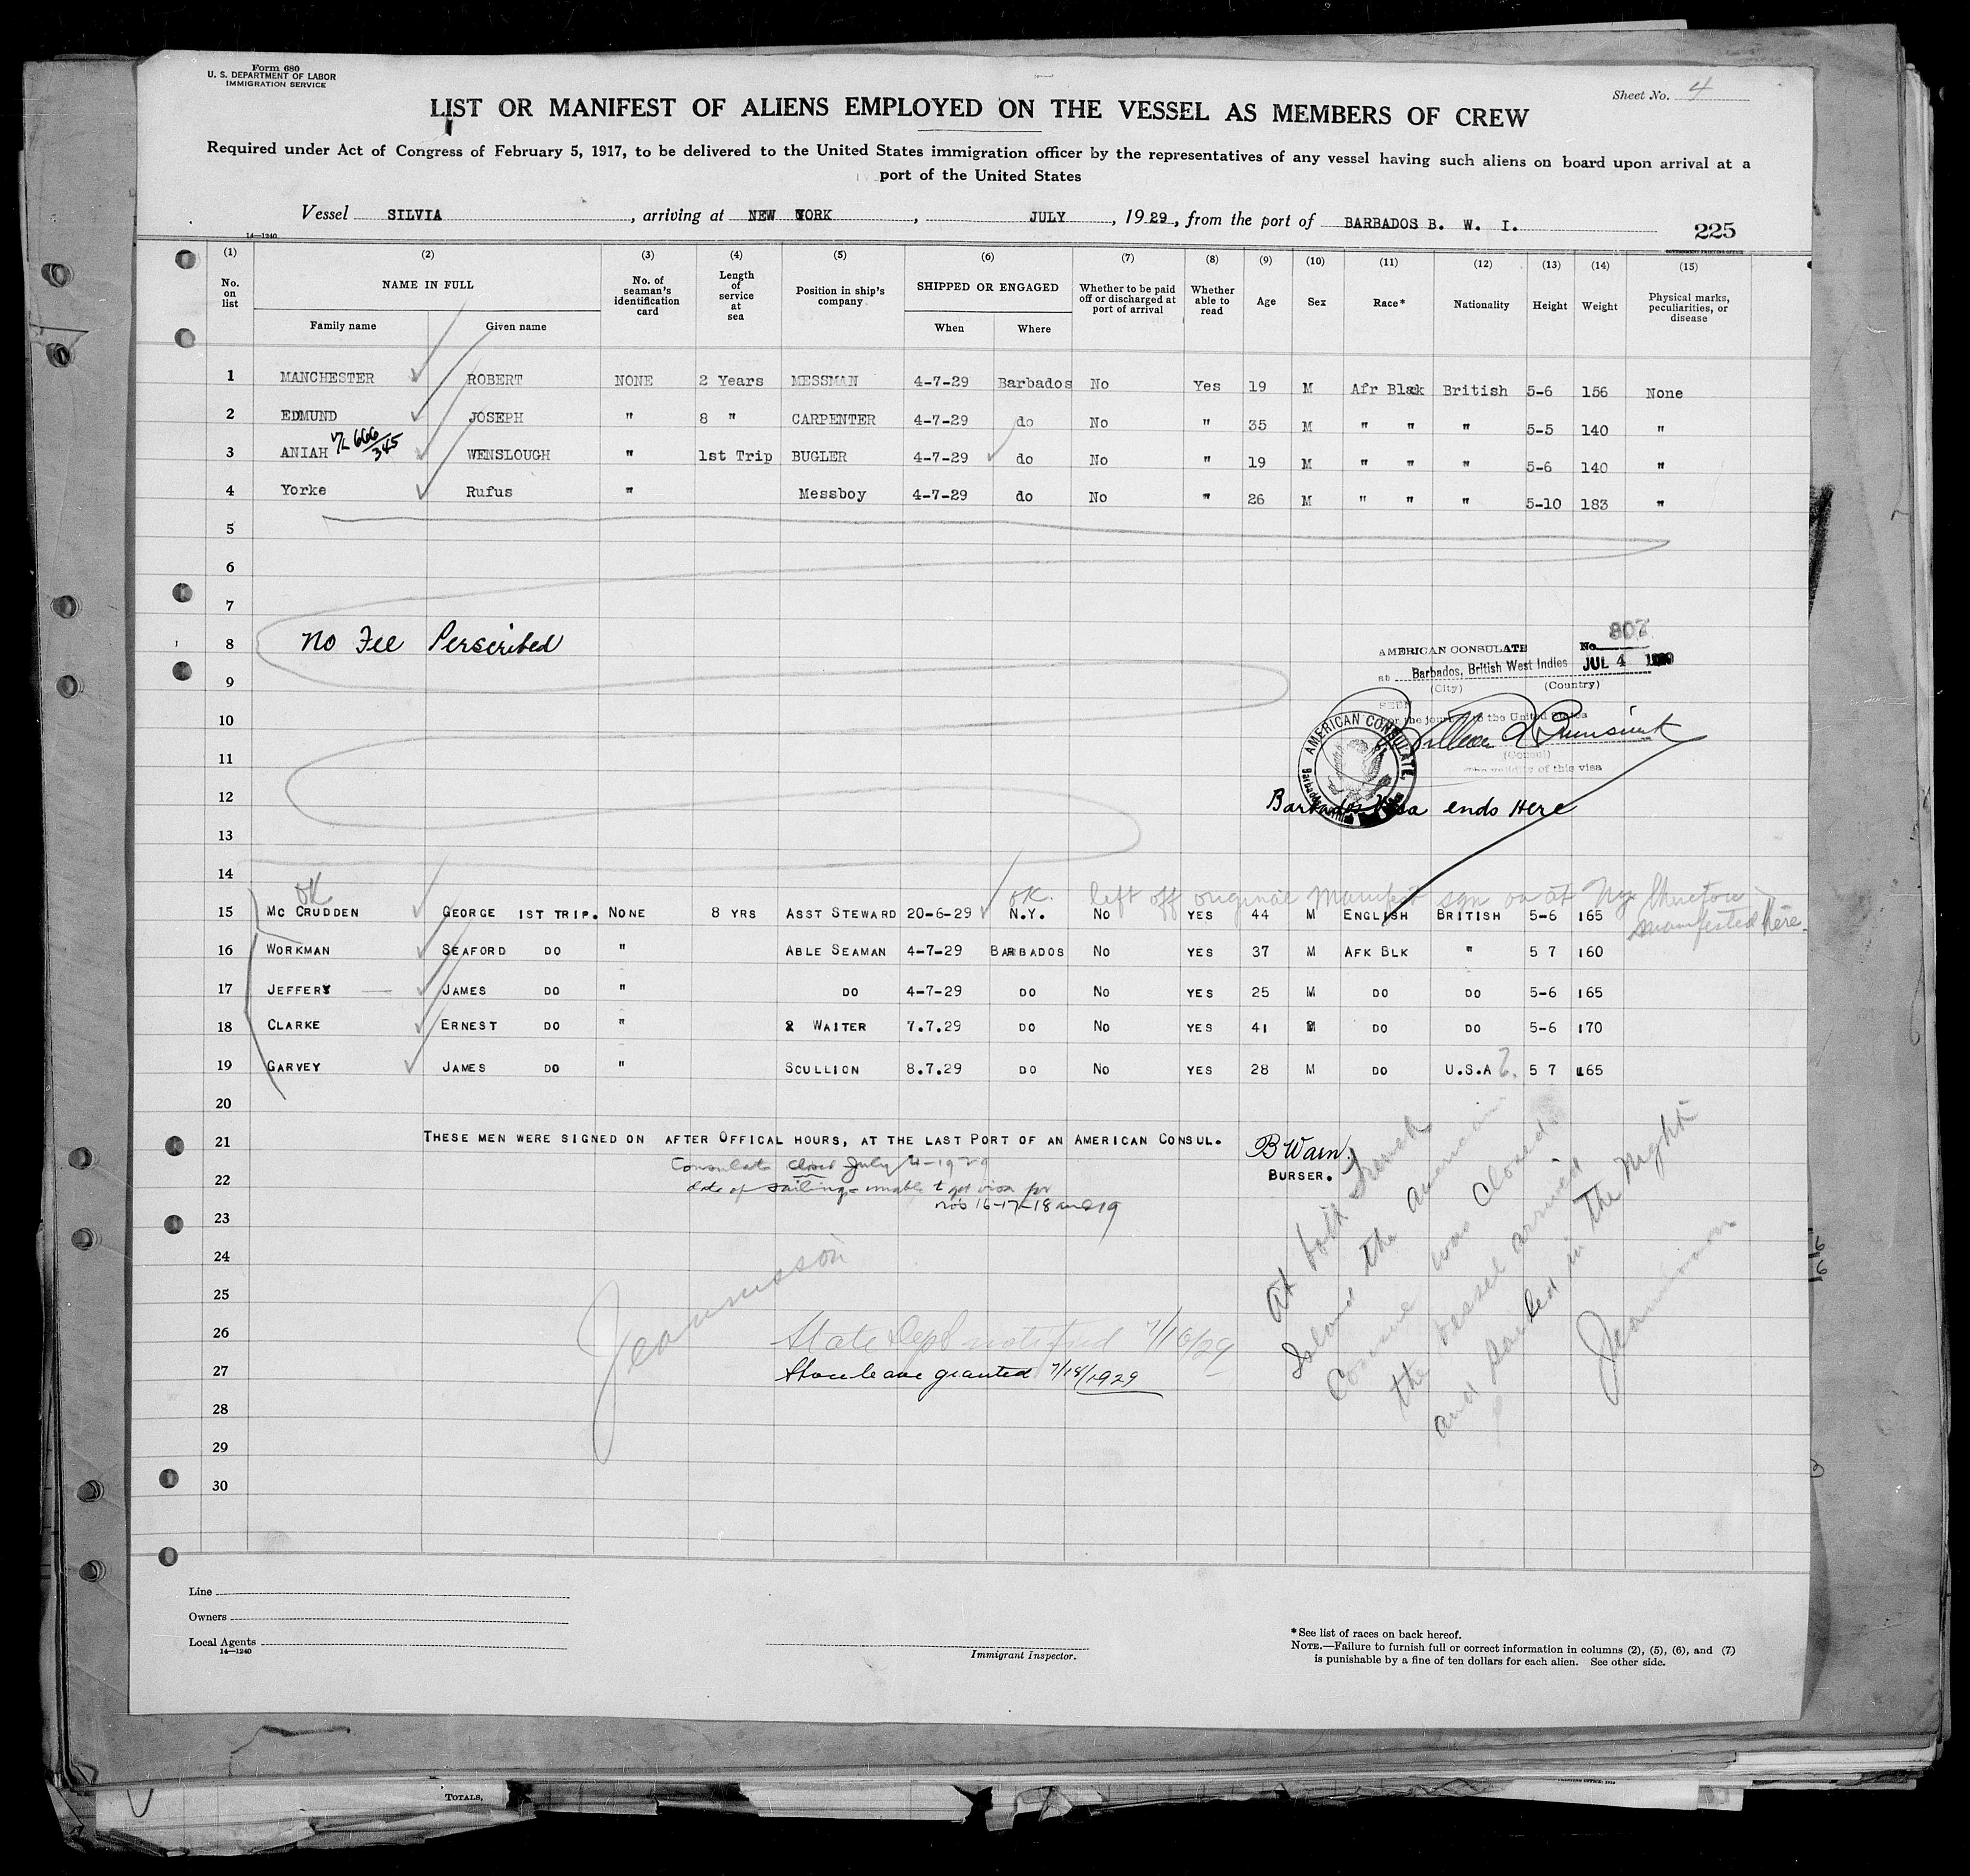 Form 680
U. S. DEPARTMENT OF LABOR
IMMIGRATION SERVICE
Sheet No. 4
LIST OR MANIFEST OF ALIENS EMPLOYED ON THE VESSEL AS MEMBERS OF CREW
Required under Act of Congress of February 5, 1917, to be delivered to the United States immigration officer by the representatives of any vessel having such aliens on board upon arrival at a
port of the United States
Vessel SILVIA, arriving at NEW YORK, JULY, 1929, from the port of BARBADOS B. W. I.
14—1240
225
GOVERNMENT PRINTING OFFICE
(1) (2) (3) (4) (5) (6) (7) (8) (9) (10) (11) (12) (13) (14) (15)
No. on list NAME IN FULL Family name Given name No. of seaman's identification card Length of service at sea Position in ship's company SHIPPED OR ENGAGED When Where Whether to be paid off or discharged at port of arrival Whether able to read Age Sex Race* Nationality Height Weight Physical marks, peculiarities, or disease
1 MANCHESTER ROBERT NONE 2 Years MESSMAN 4-7-29 Barbados No Yes 19 M Afr Black British 5-6 156 None
2 EDMUND JOSEPH " 8 " CARPENTER 4-7-29 do No " 35 M " " " 5-5 140 "
3 ANIAH 666/345 WENSLOUGH " 1st Trip BUGLER 4-7-29 do No " 19 M " " " 5-6 140 "
4 Yorke Rufus " Messboy 4-7-29 do No " 26 M " " " 5-10 183 "
5
6
7
8 No Fee Perscribed
9
10
11
12
13
14
AMERICAN CONSULATE No. 807
at Barbados, British West Indies JUL 4
(City) (Country)
SEEN
For the journey to the United States
(Consul)
The validity of this visa
AMERICAN CONSULATE,
Barbados Visa ends Here
OK OK. left off original Manifest sgn on at N.Y. therefore
manifested here.
15 MC CRUDDEN GEORGE 1ST TRIP. NONE 8 YRS ASST STEWARD 20-6-29 N.Y. NO YES 44 M ENGLISH BRITISH 5-6 165
16 WORKMAN SEAFORD DO " ABLE SEAMAN 4-7-29 BARBADOS NO YES 37 M AFK BLK " 5 7 160
17 JEFFERY JAMES DO " DO 4-7-29 DO NO YES 25 M DO DO 5-6 165
18 CLARKE ERNEST DO " 2 WAITER 7.7.29 DO NO YES 41 M DO DO 5-6 170
19 GARVEY JAMES DO " SCULLION 8.7.29 DO NO YES 28 M DO U.S.A ?. 5 7 165
20
21 THESE MEN WERE SIGNED ON AFTER OFFICAL HOURS, AT THE LAST PORT OF AN AMERICAN CONSUL. B Warn.
BURSER.
Consulate closed July 4-1929
date of sailing - unable to get visa for
nos 16-17-18 and 19
22
23
24
25
26 State Dept notified 7/16/29
27 Shore leave granted 7/18/1929
28
29
30
At both French
Island the American
was closed.
the vessel arrived
and sailed in the Night
Line
Owners
Local Agents
14—1240
Immigrant Inspector.
*See list of races on back hereof.
NOTE.—Failure to furnish full or correct information in columns (2), (5), (6), and (7)
is punishable by a fine of ten dollars for each alien. See other side.
TOTALS,